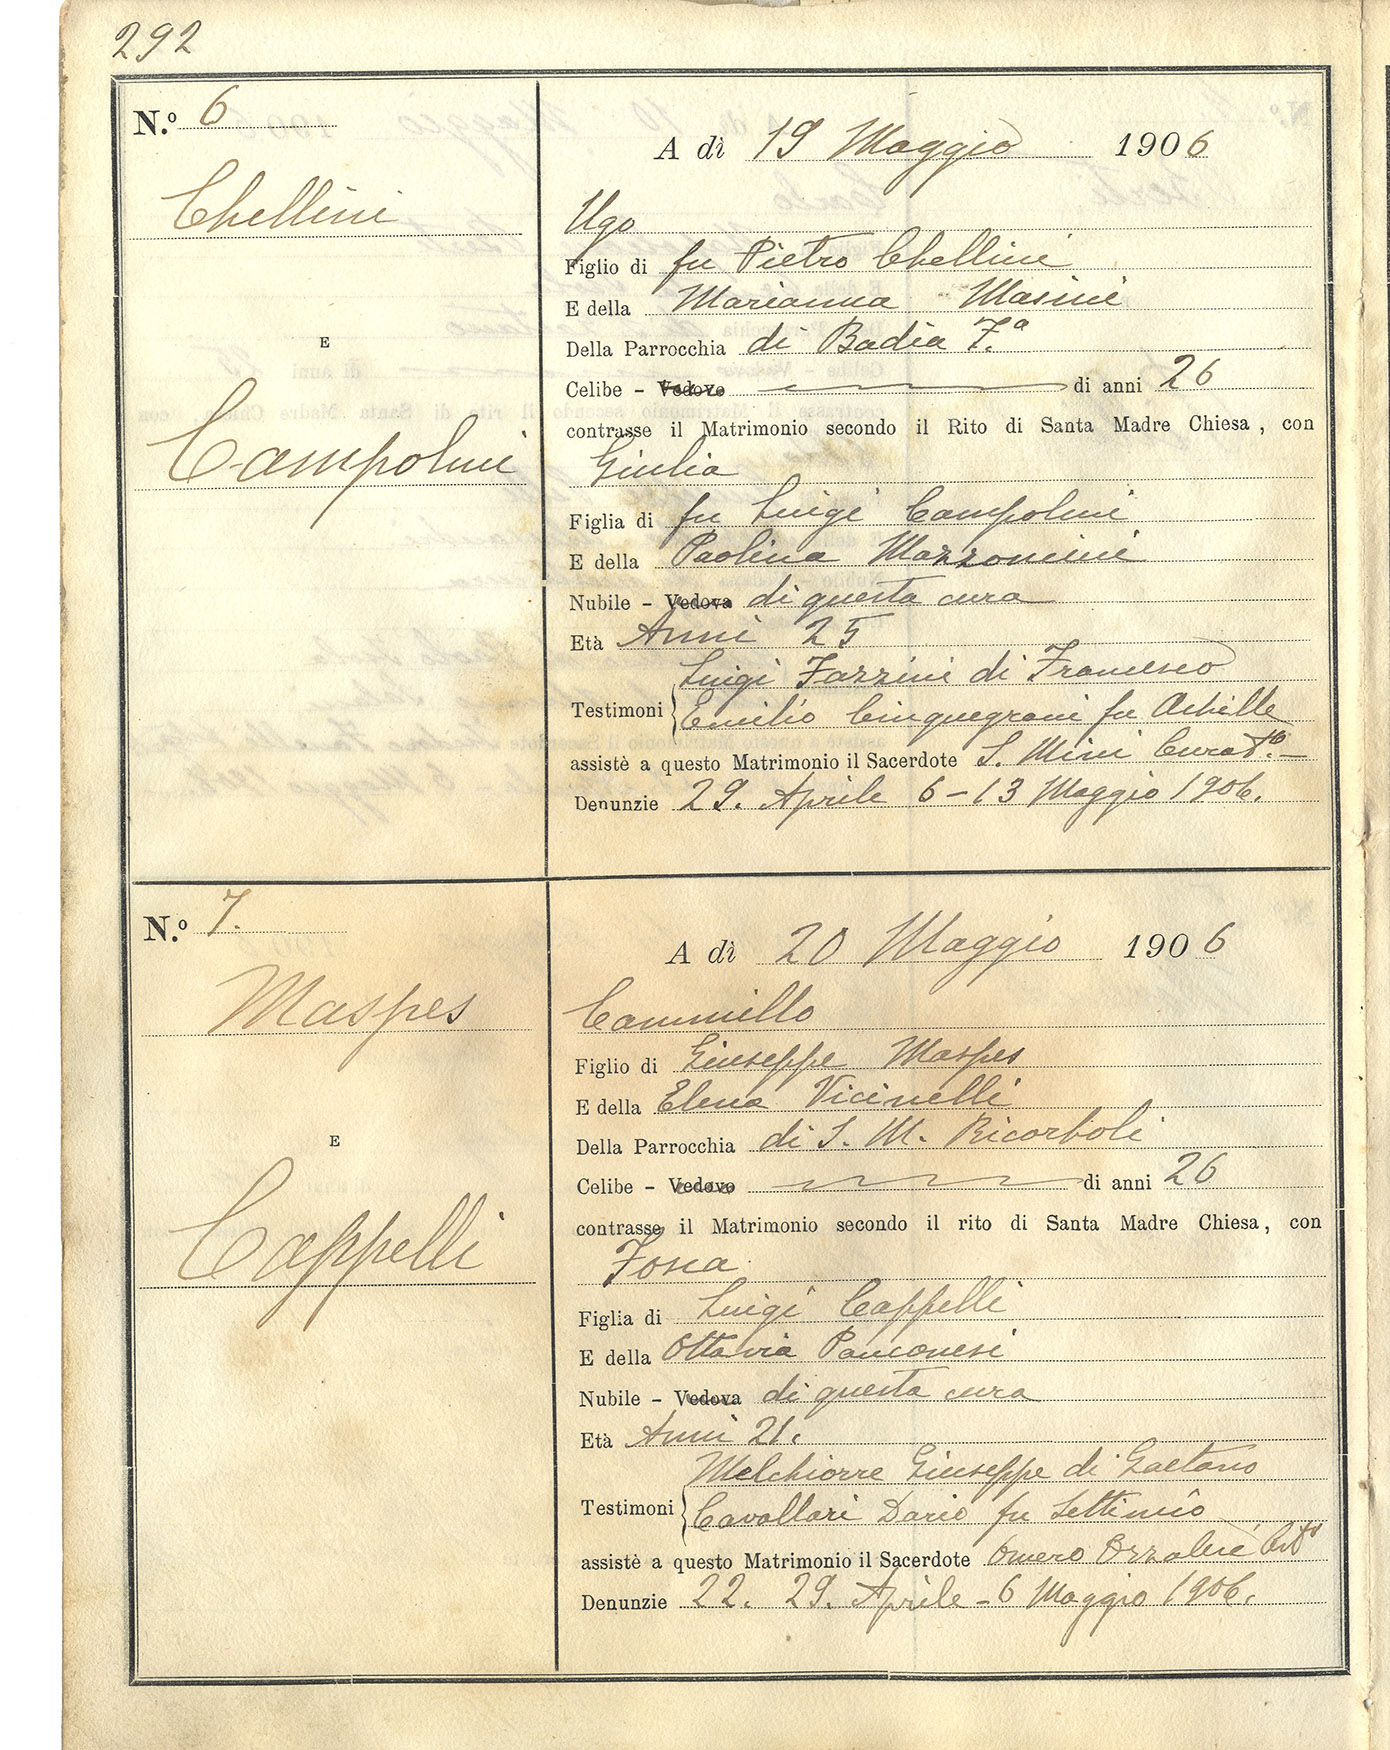 292
N.º 6
A dì 19 Maggio 1906
Chellini
Ugo
Figlio di fu Pietro Chellini
E della Marianna Masini
E
Della Parrocchia di Badia F.ª
Celibe - Vedovo di anni 26
contrasse il Matrimonio secondo il Rito di Santa Madre Chiesa, con
Campolmi
Giulia
Figlia di fu Luigi Campolmi
E della Paolina Mazzonini
Nubile - Vedova di questa cura
Età Anni 25
Luigi Fazzini di Francesco
Testimoni Emilio Cinquegrani fu Achille
assistè a questo Matrimonio il Sacerdote S. Mini Curato
Denunzie 29. Aprile 6-13 Maggio 1906.
N.º 7.
A dì 20 Maggio 1906
Maspes
Cammillo
Figlio di Giuseppe Maspes
E della Elena Vicinelli
E
Della Parrocchia di S. M. Ricorboli
Celibe - Vedovo di anni 26
contrasse il Matrimonio secondo il rito di Santa Madre Chiesa, con
Cappelli
Fosca
Figlia di Luigi Cappelli
E della Ottavia Panconesi
Nubile - Vedova di questa cura
Età Anni 21.
Melchiorre Giuseppe di Gaetano
Testimoni Cavallari Dario fu Settimio
assistè a questo Matrimonio il Sacerdote Omero
Denunzie 22. 29. Aprile - 6 Maggio 1906.